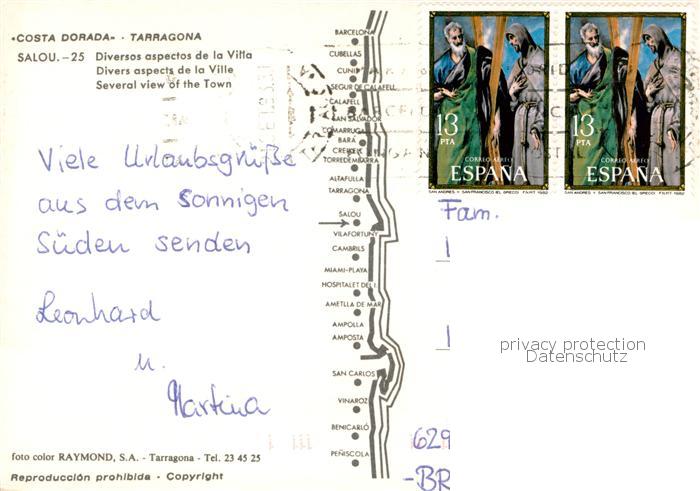 «COSTA DORADA» - TARRAGONA
SALOU. - 25 Diversos aspectos de la Villa
Divers aspects de la Ville
Several view of the Town
Viele Urlaubsgrüße
aus dem sonnigen
Süden senden
Leonhard
u.
Martina
foto color RAYMOND, S.A. - Tarragona - Tel. 23 45 25
Reproducción prohibida - Copyright
BARCELONA
CUBELLAS
CUNIT
SEGUR DE CALAFELL
CALAFELL
SAN SALVADOR
COMARRUGA
BARA
CREIXELL
TORREDEMBARRA
ALTAFULLA
TARRAGONA
SALOU
VILAFORTUNY
CAMBRILS
MIAMI-PLAYA
HOSPITALET DEL I.
AMETLLA DE MAR
AMPOLLA
AMPOSTA
SAN CARLOS
VINAROZ
BENICARLÓ
PEÑISCOLA
13
PTA
CORREO AEREO
ESPAÑA
SAN ANDRES Y SAN FRANCISCO (EL GRECO) F.N.M.T. 1982
13
PTA
CORREO AEREO
ESPAÑA
SAN ANDRES Y SAN FRANCISCO (EL GRECO) F.N.M.T. 1982
Fam.
629
-BR
privacy protection
Datenschutz